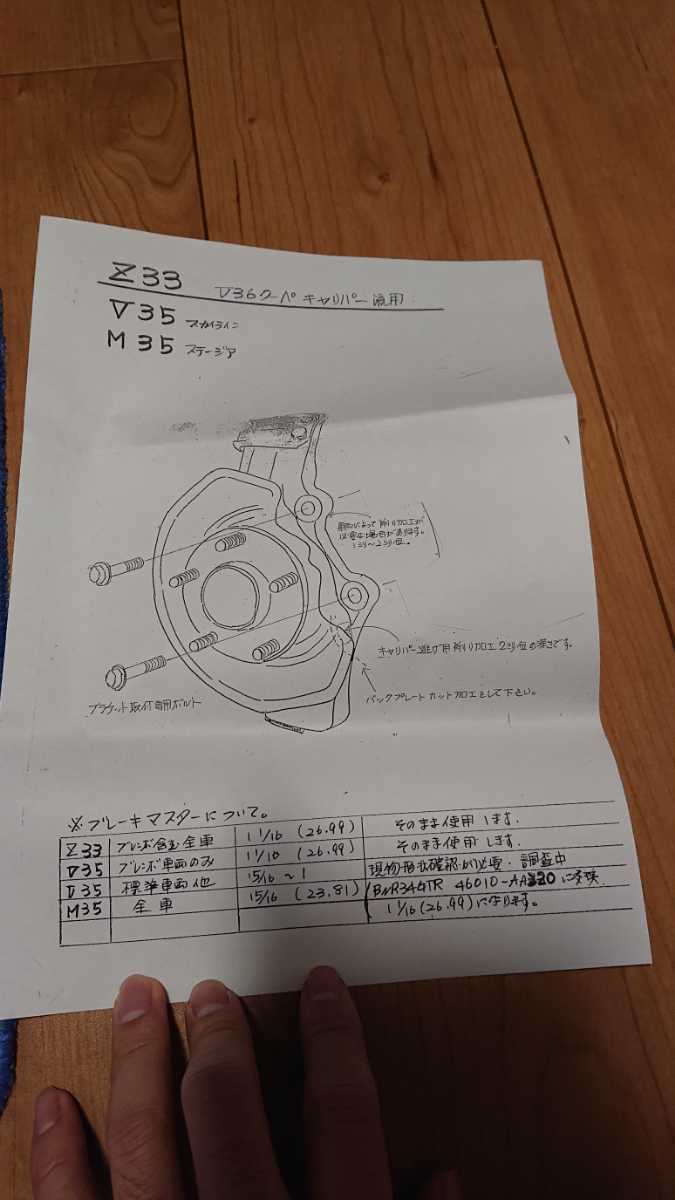 Z33 V36クーペ キャリパー流用
V35 スカイライン
M35 ステージア
車両によって削り加工が
必要な場合があります。
1ミリ〜2ミリ位。
キャリパー逃げ用削り加工 2ミリ位の深さです。
バックプレートカット加工をして下さい。
ブラケット取付専用ボルト
※ブレーキマスターについて。
Z33 ブレンボ含む全車 1 1/16 (26.99) そのまま使用します。
V35 ブレンボ車両のみ 1 1/16 (26.99) そのまま使用します。
V35 標準車両他 15/16 〜 1 現物確認が必要・調査中
M35 全車 15/16 (23.81) BNR34GTR 46010-AA320に交換
1 1/16 (26.99)になります。